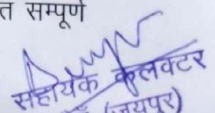 त सम्पूर्ण
सहायक कलक्टर
(जयपुर)